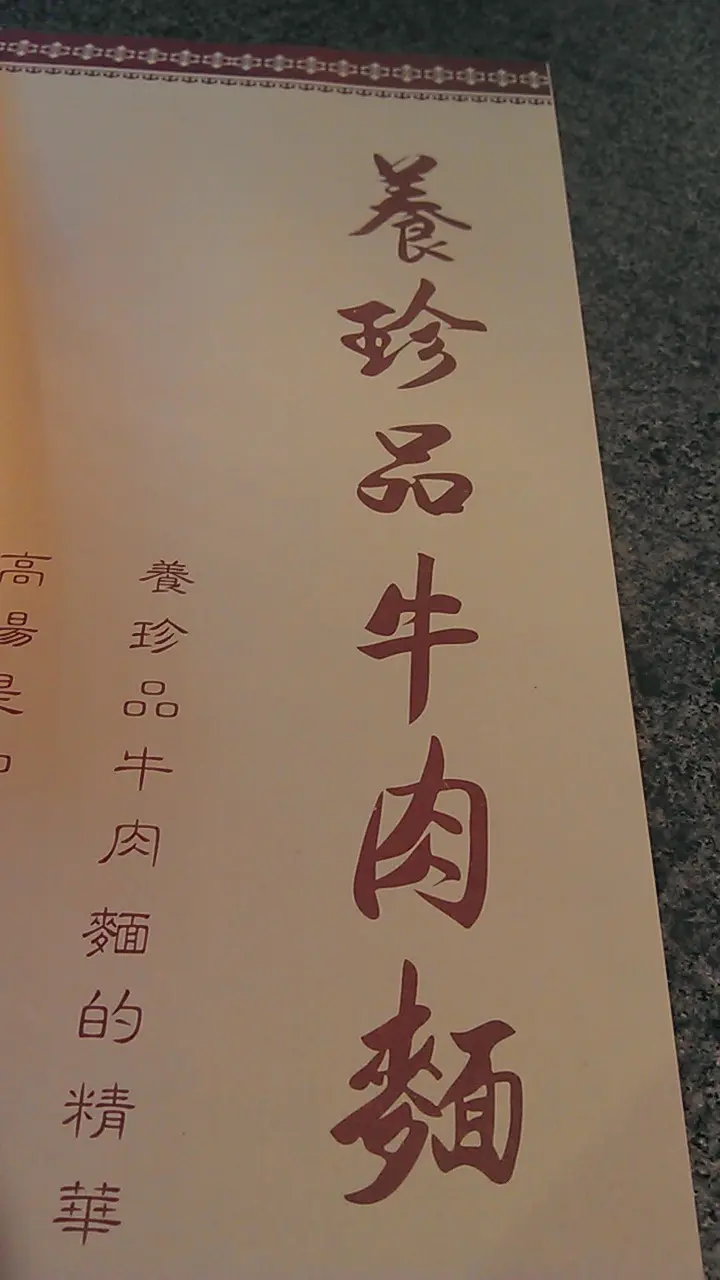 養珍品牛肉麵
養珍品牛肉麵的精華
高湯是